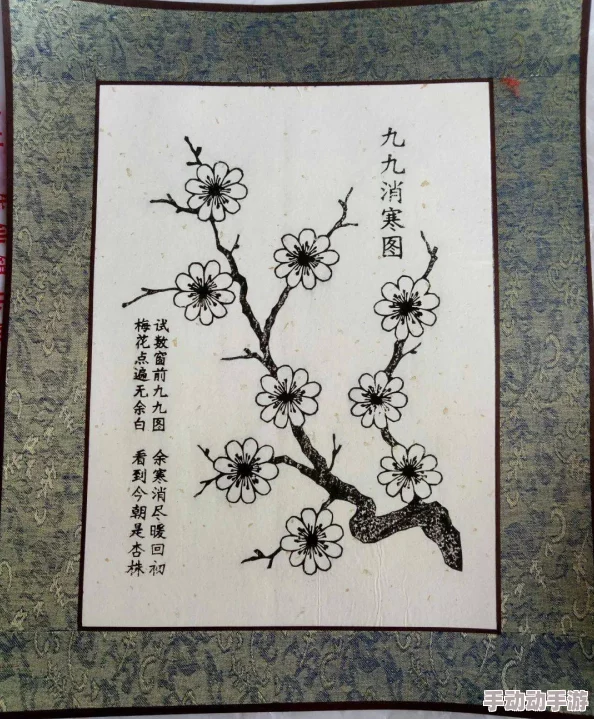 九九消寒图
试数窗前九九图 余寒消尽暖回初
梅花点遍无余白 看到今朝是杏株
手动动手游